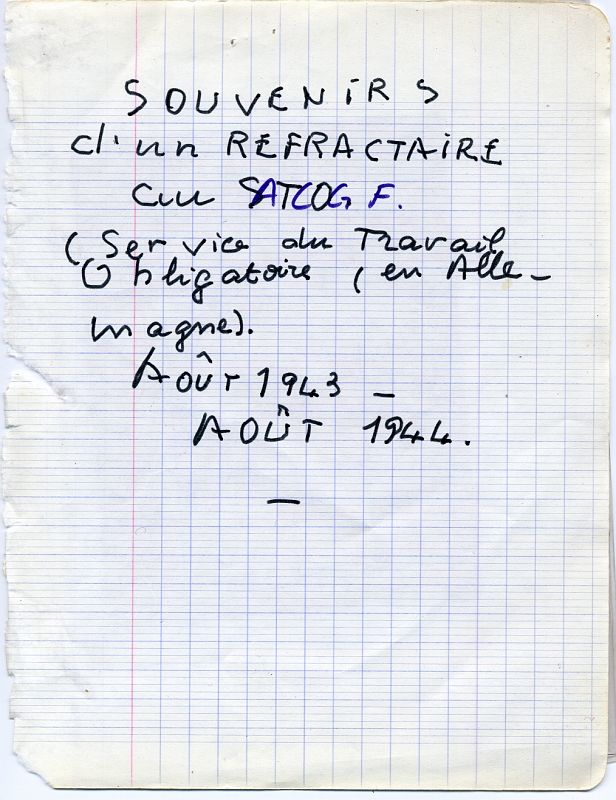 SOUVENIRS
d'un REFRACTAIRE
au
(Service du Travail
Obligatoire (en Alle-
magne).
AOÛT 1943 -
AOÛT 1944.
-